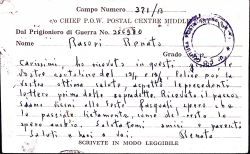 Campo Numero 371/B
c/o CHIEF P.O.W. POSTAL CENTRE MIDDLE
Dal Prigioniero di Guerra No.
Nome Rasori Renato
Grado
Carissimi, ho ricevuto in questi
Vostre cartoline del e Felice per la
vostra ottima salute, aspetto le precedenti
lettere prima delle suddette.
siamo vicini alle feste Pasquali, spero che
le passiate lietamente, come del resto lo
spero anch'io. Salutatemi amici e parenti
Saluti e baci a voi. Renato
SCRIVETE IN MODO LEGGIBILE